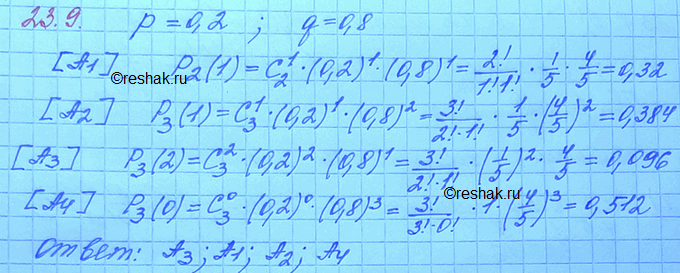 23.9. p = 0,2 ; q = 0,8
[A1] P₂(1) = C₂¹·(0,2)¹·(0,8)¹ = 2!/1!·1! · 1/5 · 4/5 = 0,32
©reshak.ru
[A2] P₃(1) = C₃¹·(0,2)¹·(0,8)² = 3!/2!·1! · 1/5 · (4/5)² = 0,384
[A3] P₃(2) = C₃²·(0,2)²·(0,8)¹ = 3!/2!·1! · (1/5)² · 4/5 = 0,096
[A4] P₃(0) = C₃⁰·(0,2)⁰·(0,8)³ = 3!/3!·0! · 1 · (4/5)³ = 0,512
©reshak.ru
Ответ: A3 ; A1 ; A2 ; A4